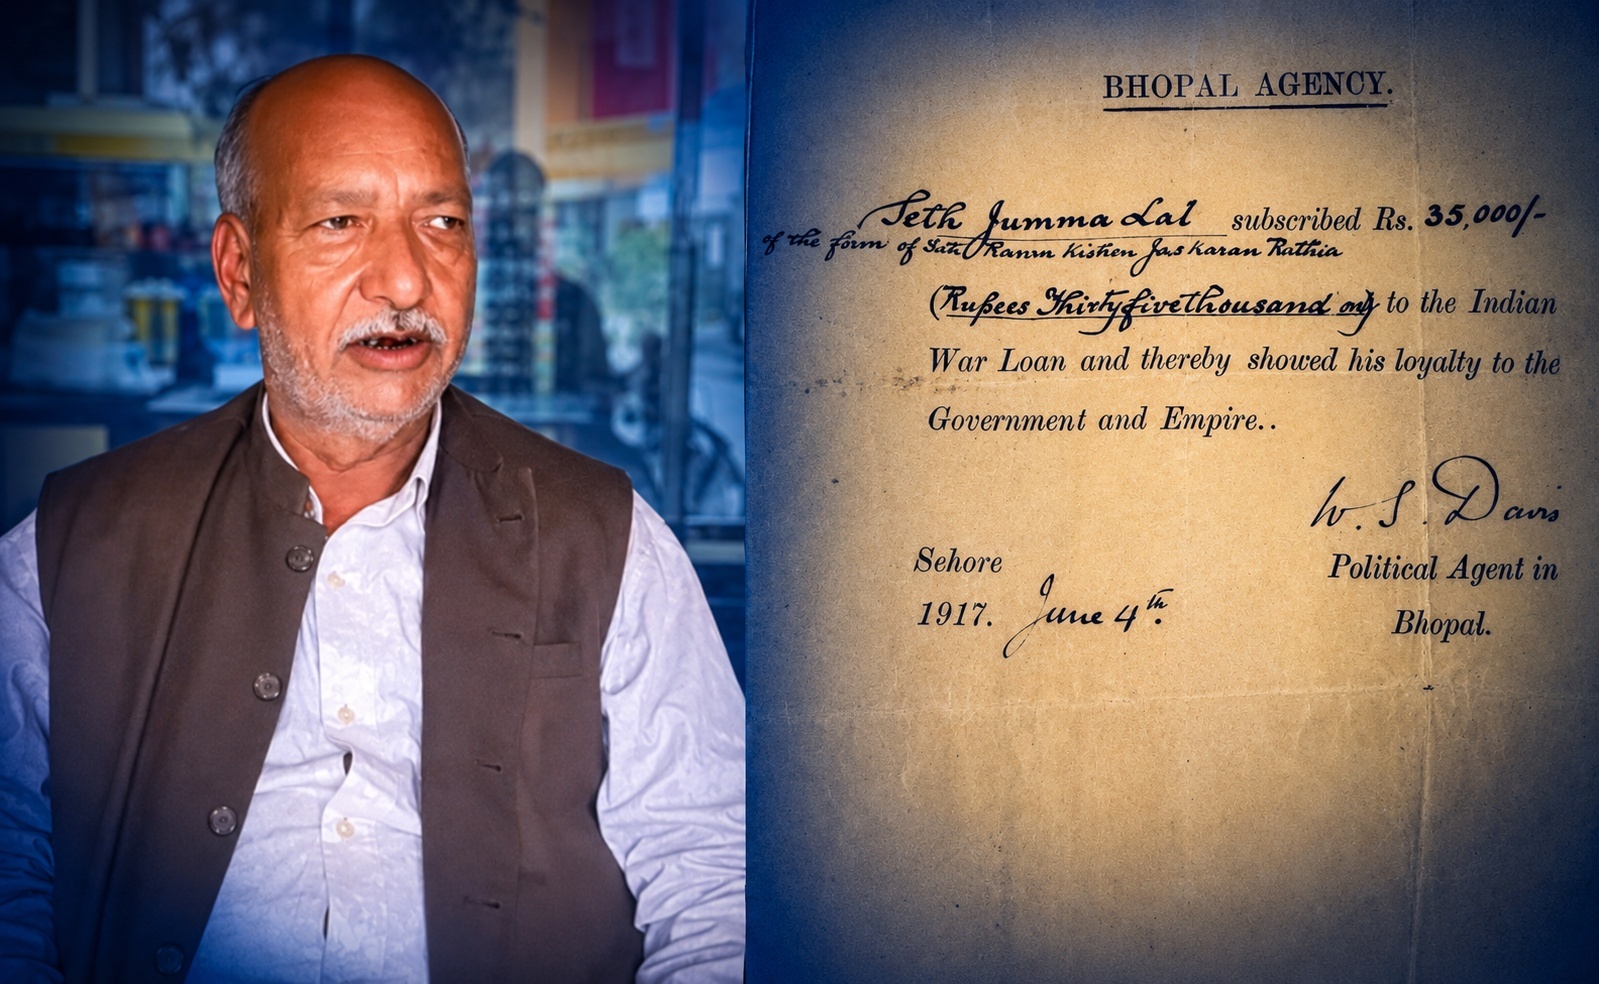 BHOPAL AGENCY.
Seth Jumma Lal subscribed Rs. 35,000/-
of the form of Sate Ramn Kishen Jas Karan Ruthia
(Rupees Thirtyfivethousand only) to the Indian
War Loan and thereby showed his loyalty to the
Government and Empire..
W. S. Davis
Sehore Political Agent in
1917. June 4th. Bhopal.